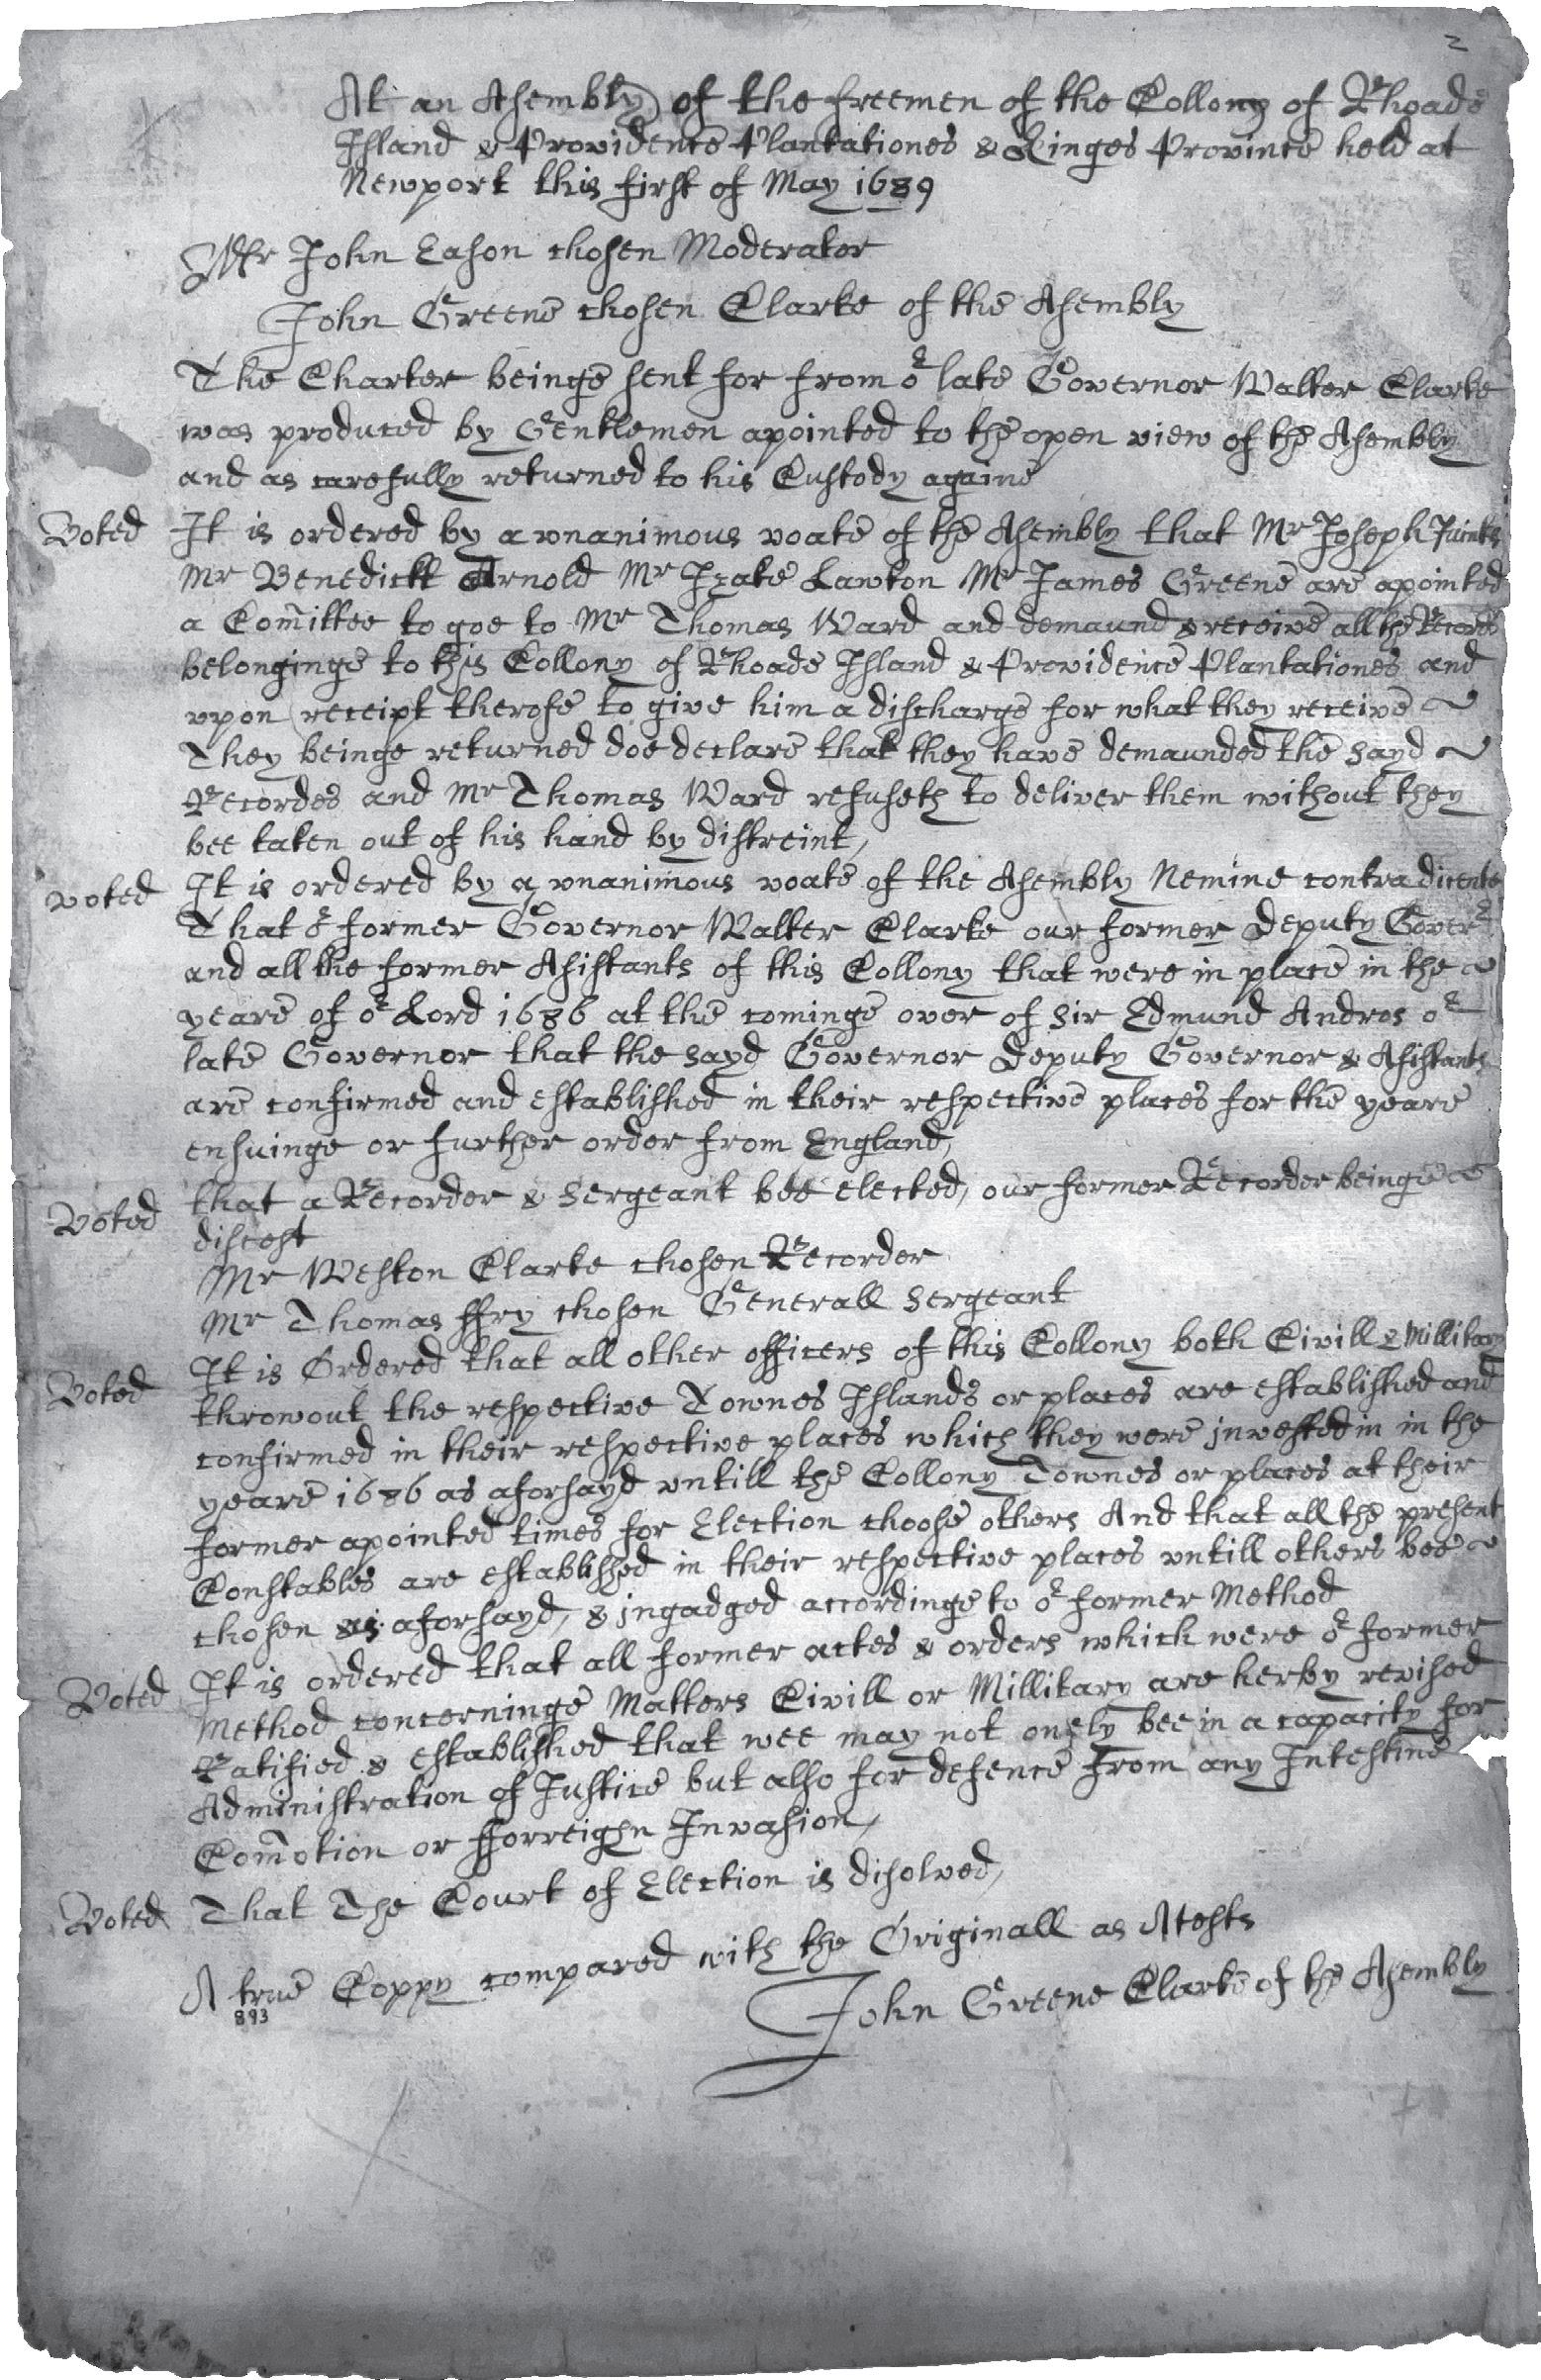 2
At an Asembly of the freemen of the Collony of Rhoade
Island & Providence Plantationes & Kinges Province held at
Newport this first of May 1689
Mr John Eason chosen Moderator
John Greene chosen Clarke of the Asembly
The Charter beinge sent for from or late Governor Walter Clarke
was produced by Gentlemen apointed to the open view of the Asembly
and as carefully returned to his Custody againe
Voted It is ordered by a vnanimous voate of the Asembly that Mr Joseph
Mr Benedickt Arnold Mr Izake Lawton Mr James Greene are apointed
a Comittee to goe to Mr Thomas Ward and demaund & receive all the Recordes
belonginge to this Collony of Rhoade Island & Providence Plantationes and
vpon receipt therofe to give him a discharge for what they receive
They beinge returned doe declare that they have demaunded the sayd
Recordes and Mr Thomas Ward refuseth to deliver them without they
bee taken out of his hand by distreint,
voted It is ordered by a vnanimous voate of the Asembly Nemine contradicente
That or former Governor Walter Clarke our former Deputy Goverr
and all the former Asistants of this Collony that were in place in the
yeare of or Lord 1686 at the cominge over of Sir Edmund Andros or
late Governor that the sayd Governor Deputy Governor & Asistants
are confirmed and established in their respective places for the yeare
ensuinge or further order from England,
Voted that a Recorder & Sergeant bee elected, our former Recorder beinge
diseast
Mr Weston Clarke chosen Recorder
Mr Thomas ffry chosen Generall Sergeant
Voted It is Ordered that all other officers of this Collony both Civill & Millitary
throwout the respective Townes Islands or places are established and
confirmed in their respective places which they were invested in in the
yeare 1686 as aforsayd vntill the Collony Townes or places at their
former apointed times for Election choose others And that all the present
Constables are established in their respective places vntill others bee
chosen as aforsayd, & ingadged accordinge to or former Method
Voted It is ordered that all former actes & orders which were or former
Method concerninge Matters Civill or Millitary are herby revised
Ratified & established that wee may not onely bee in a capacity for
Administration of Justice but also for defence from any Intestine
Comotion or fforreighn Invasion,
Voted That The Court of Election is disolved,
A true Coppy compared with the Originall as Atests
893
John Greene Clarke of the Asembly